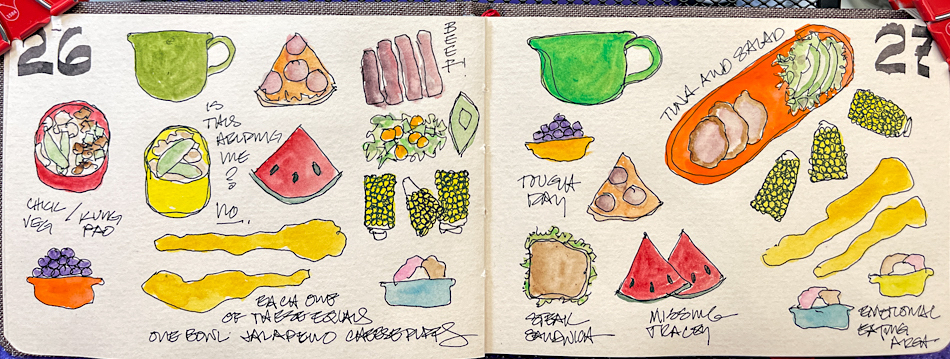 26
BEEF!
IS
THIS
HELPING
ME
?
NO.
CHICK
VEG / KUNG
PAO
EACH ONE
OF THESE EQUALS
ONE BOWL JALAPENO CHEESE PUFFS
27
TUNA AND SALAD
TOUGH
DAY
STEAK
SANDWICH
MISSING
TRACEY
EMOTIONAL
EATING
AREA